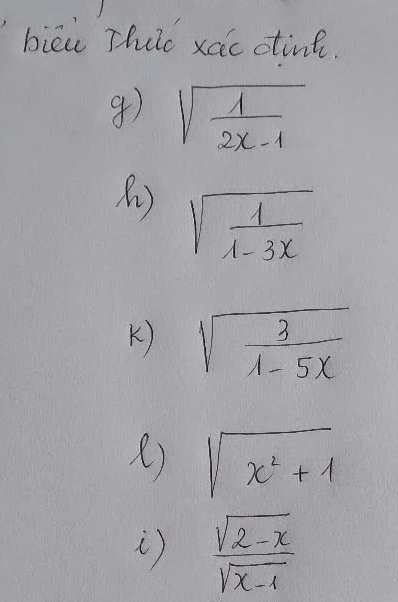 biểu thức xác định.
g) √(1/(2x-1))
h) √(1/(1-3x))
k) √(3/(1-5x))
l) √(x²+1)
i) √(2-x)/√(x-1)